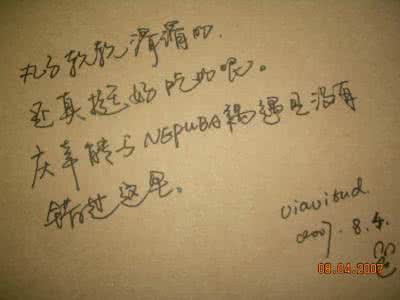 丸子软软滑滑的.
还真挺好吃的呢。
庆幸能与NEPUBA偶遇且没有
错过这里。
viavitud.
2007.8.4.
08.04.2007